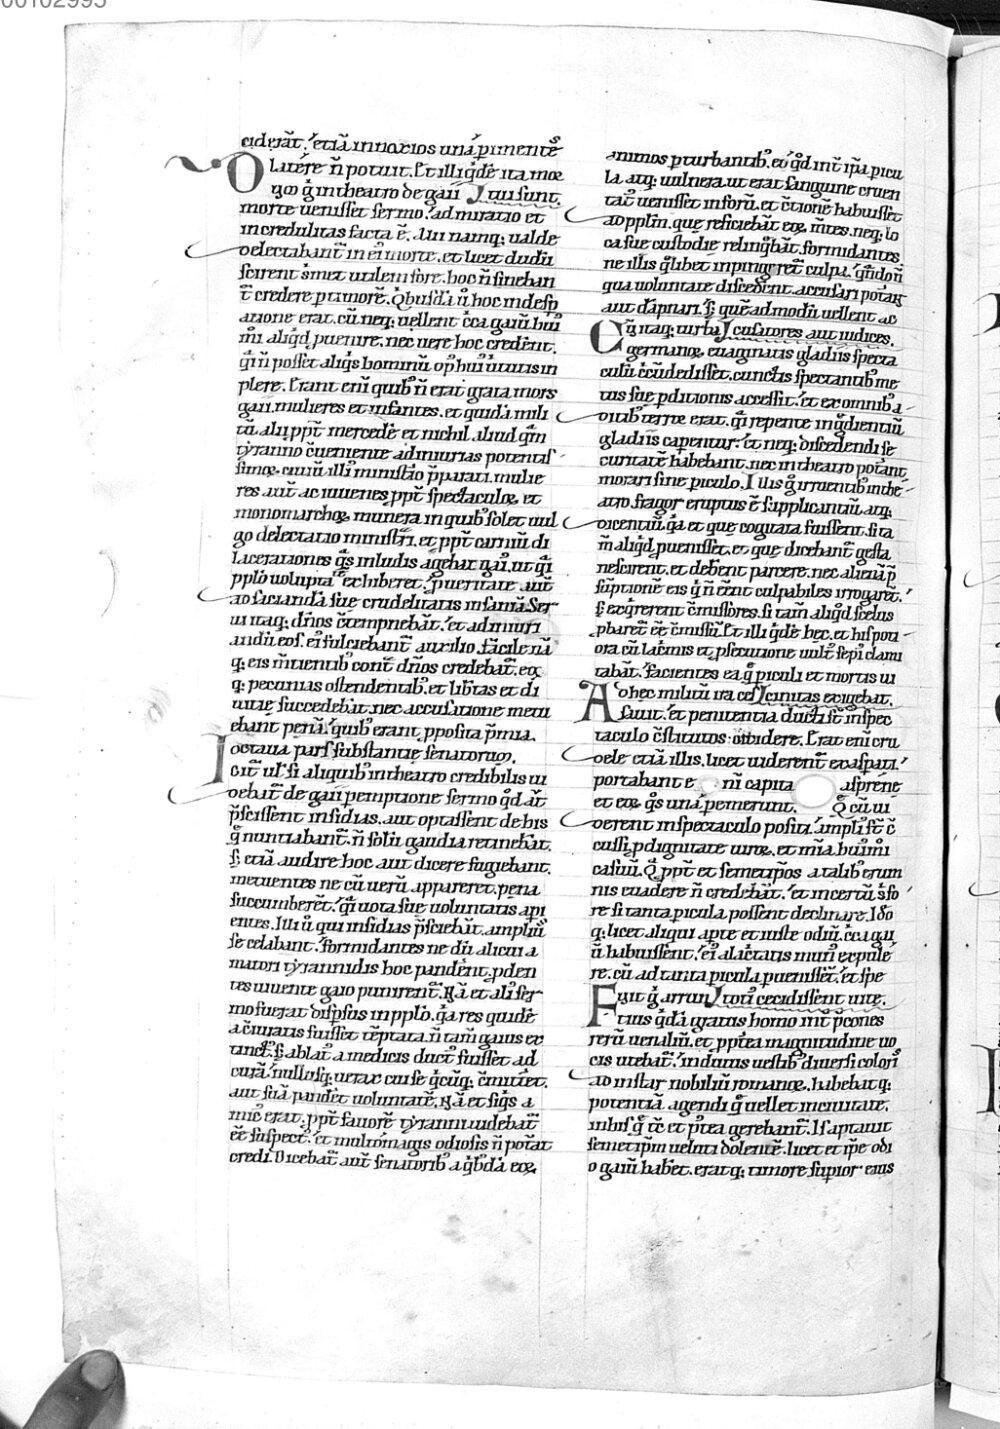 00102995
ciderat̄. etiā innoxios unā pimentes
Olatēre n̄ potuit. Et illi q̇dē ita moe
go g̊ in theatro de gaii I tui sunt.
morte uenisset sermo. admiratio et
incredulitas facta ē. Alii namq; ualde
delectabant̄ in ei᷒ morte. et licet dudū
scirent s̓met utilem fore. hoc n̄ sineban
t̄ credere p timorē. Q̓busdā ū hoc in desp
atione erat. cū neq; uellent c̄ca gaiū hui᷒
m̓i aliq̇d puenire. nec uere hoc credēnt.
q̓i n̄ posset aliq̓s hominū op᷒ hui᷒ uirtutis in
plere. Erant eni quib᷒ n̄ erat grata mors
gaii. mulieres et infantes. et quidā mili
tū. alii ppt̄ mercedē et nichil aliud q̓m
tyranno c̄ueniente ad iniurias potentis
res aut̄ ac iuuenes ppt̄ spectaculoꝝ et
monomarchoꝝ munera in quib᷒ solet uul
go delectatio ministrari. et ppt̄ carniū di
lacerationes q̓s in ludis agebat gai᷒. ut q̓i
pplo uoluptatē exhiberet. pueritate aut̄
ad faciandā sue crudelitatis insaniā. Ser
ui itaq; dn̄os c̄tempnebāt. et ad iniuri
andū eos. ei᷒ fulciebant̄ auxilio. facile nā
q; eis m̄tientib᷒ cont̄ dn̄os credebāt. eoꝝ
q; pecunias ostendentib᷒. et lib̄tas et di
uitie succedebāt. nec accusatione metu
ebant penā. quib᷒ erant pposita p̄mia.
I octaua pars substantie senatoruꝝ.
Dic̄t ul᷒ si aliquib᷒ in theatro credibilis ui
debat̄ de gaii pemptione sermo q̇d aūt
p̄scissent insidias. aut optassent de his
q̄ nuntiabant̄. n̄ solū gaudia retinebāt.
s; etiā audire hoc aut dicere fugiebant.
metuentes ne cū uerū appareret. pena
succumberēt. q̓i uota sue uoluntatis api
entes. Illi ū qui insidias p̄sciebāt. ampliū᷒
se celabant. formidantes ne dū alicui a
matori tyrannidis hoc pandēnt. p den
tes uiuente gaio punirent̄. Nā et ali᷒ ser
mo fuerat dispsus in pplo. q̇a res quidē
a c̄iuratis fuisset tēptata. n̄ tam̄ gaius ex
tinct᷒. s; ablat᷒ a medicis duct᷒ fuisset ad
curā. nullusq; uerax cui se q̓cūq; c̄mittet.
aut suā pandēt uoluntatē. Nā et siq̓s a
mic᷒ erat. ppt̄ fauorē tyranni uidebat̄
ēe suspect᷒. et multo magis odiosis n̄ potāt
credi. Dicebāt aut̄ senatorib᷒ a q̓bdā eoꝝ
animos pturbantib᷒. eo q̇d int̄ ip̄a picu
la atq; uulnera. ut erat sanguine cruen
tat᷒ uenisset in forū. et c̄tionē habuisset
ad pplm̄. que reficiebāt eoꝝ m̄tes. neq; lo
ca sue custodie relinq̓bāt. formidantes.
ne illis q̓libet inpingeret̄ culpa. q̓ndo n̄
qua uoluntate discedēnt. accusari potāt
aut dāpnari. s; quēadmodū uellent ac
Cū itaq; turba I cusatores aut iudices.
germanoꝝ euaginatis gladiis specta
culū c̄cūdedisset. cunctis spectantib᷒ me
tus sue pditionis accessit. et ex omnib᷒ a
ditib᷒ terror erat. q̓i repente ingdientiū
gladiis capentur. et neq; discedendi se
curitatē habebant. nec in theatro potant
morari sine piculo. Illis g̊ irruentib᷒ in the
atro fragor eruptus ē supplicantiū atq;
dicentiū q̇a et que cogitata fuissent. si ita
m̄ aliq̇d puenisset. et que dicebant̄ gesta
nescirent. et debēnt parcere. nec alienā p̄
sūptionē eis q̓ n̄ ēent culpabiles irrogaret.
s; exq̓rerent c̄missores. si tam̄ aliq̇d scelus
pbaret̄ ēe c̄missū. Et illi q̇dē hec. et his pot
ora cū lac̓mis et psecutione uult᷒ sepi᷒ clami
tabāt. facientes ea q̄ piculi et mortis ui
Ad hec militū ira ces I cinitas exigebat.
sauit. et penitentia ducti s̄t inspec
taculo c̄stitutos occidere. Erat eni cru
dele etiā illis. licet uiderent̄ exaspati.
portabant e ni capita asprēne
et eoꝝ q̓s unā pemerunt. Q̄ cū ui
derent in spectaculo posita. ampli᷒ s̄t c̄
cussi. p dignitate uiroꝝ. et mīa hui᷒mōi
casuū. Q̄ ppt̄ et semetip̄os a talib᷒ erum
nis euadere n̄ credebāt. et incertū s̓ fo
re si tanta picula possent declinare. Ido
q; licet aliqui apte et iuste odiū c̄ca gai
ū habuissent. ei᷒ alac̓tatis muri expulē
re. cū ad tanta picula puenissēt. et spe
Fuit g̊ arrun I toti cecidissent uite.
tius q̇dā gratus homo int̄ p̄cones
rerū uenaliū. et ppt̄ea magnitudine uo
cis utebat̄. indutus uestib᷒ diuersi coloris
ad instar nobiliū romanoꝝ. habebatq;
potentiā agendi q̇ uellet in ciuitate.
in his q̄ tc̄ et p̓tea gerebant̄. Is aptauit
semetip̄m uelut dolentē. licet et ip̄e odi
o gaiū habēt. eratq; timore supior eius